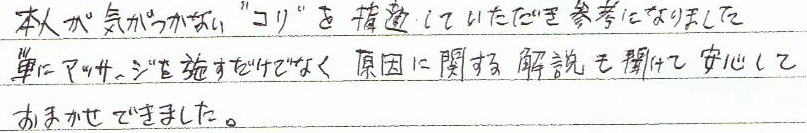 本人が気がつかない"コリ"を指摘していただき参考になりました
単にマッサージを施すだけでなく 原因に関する解説も聞けて安心して
おまかせできました。